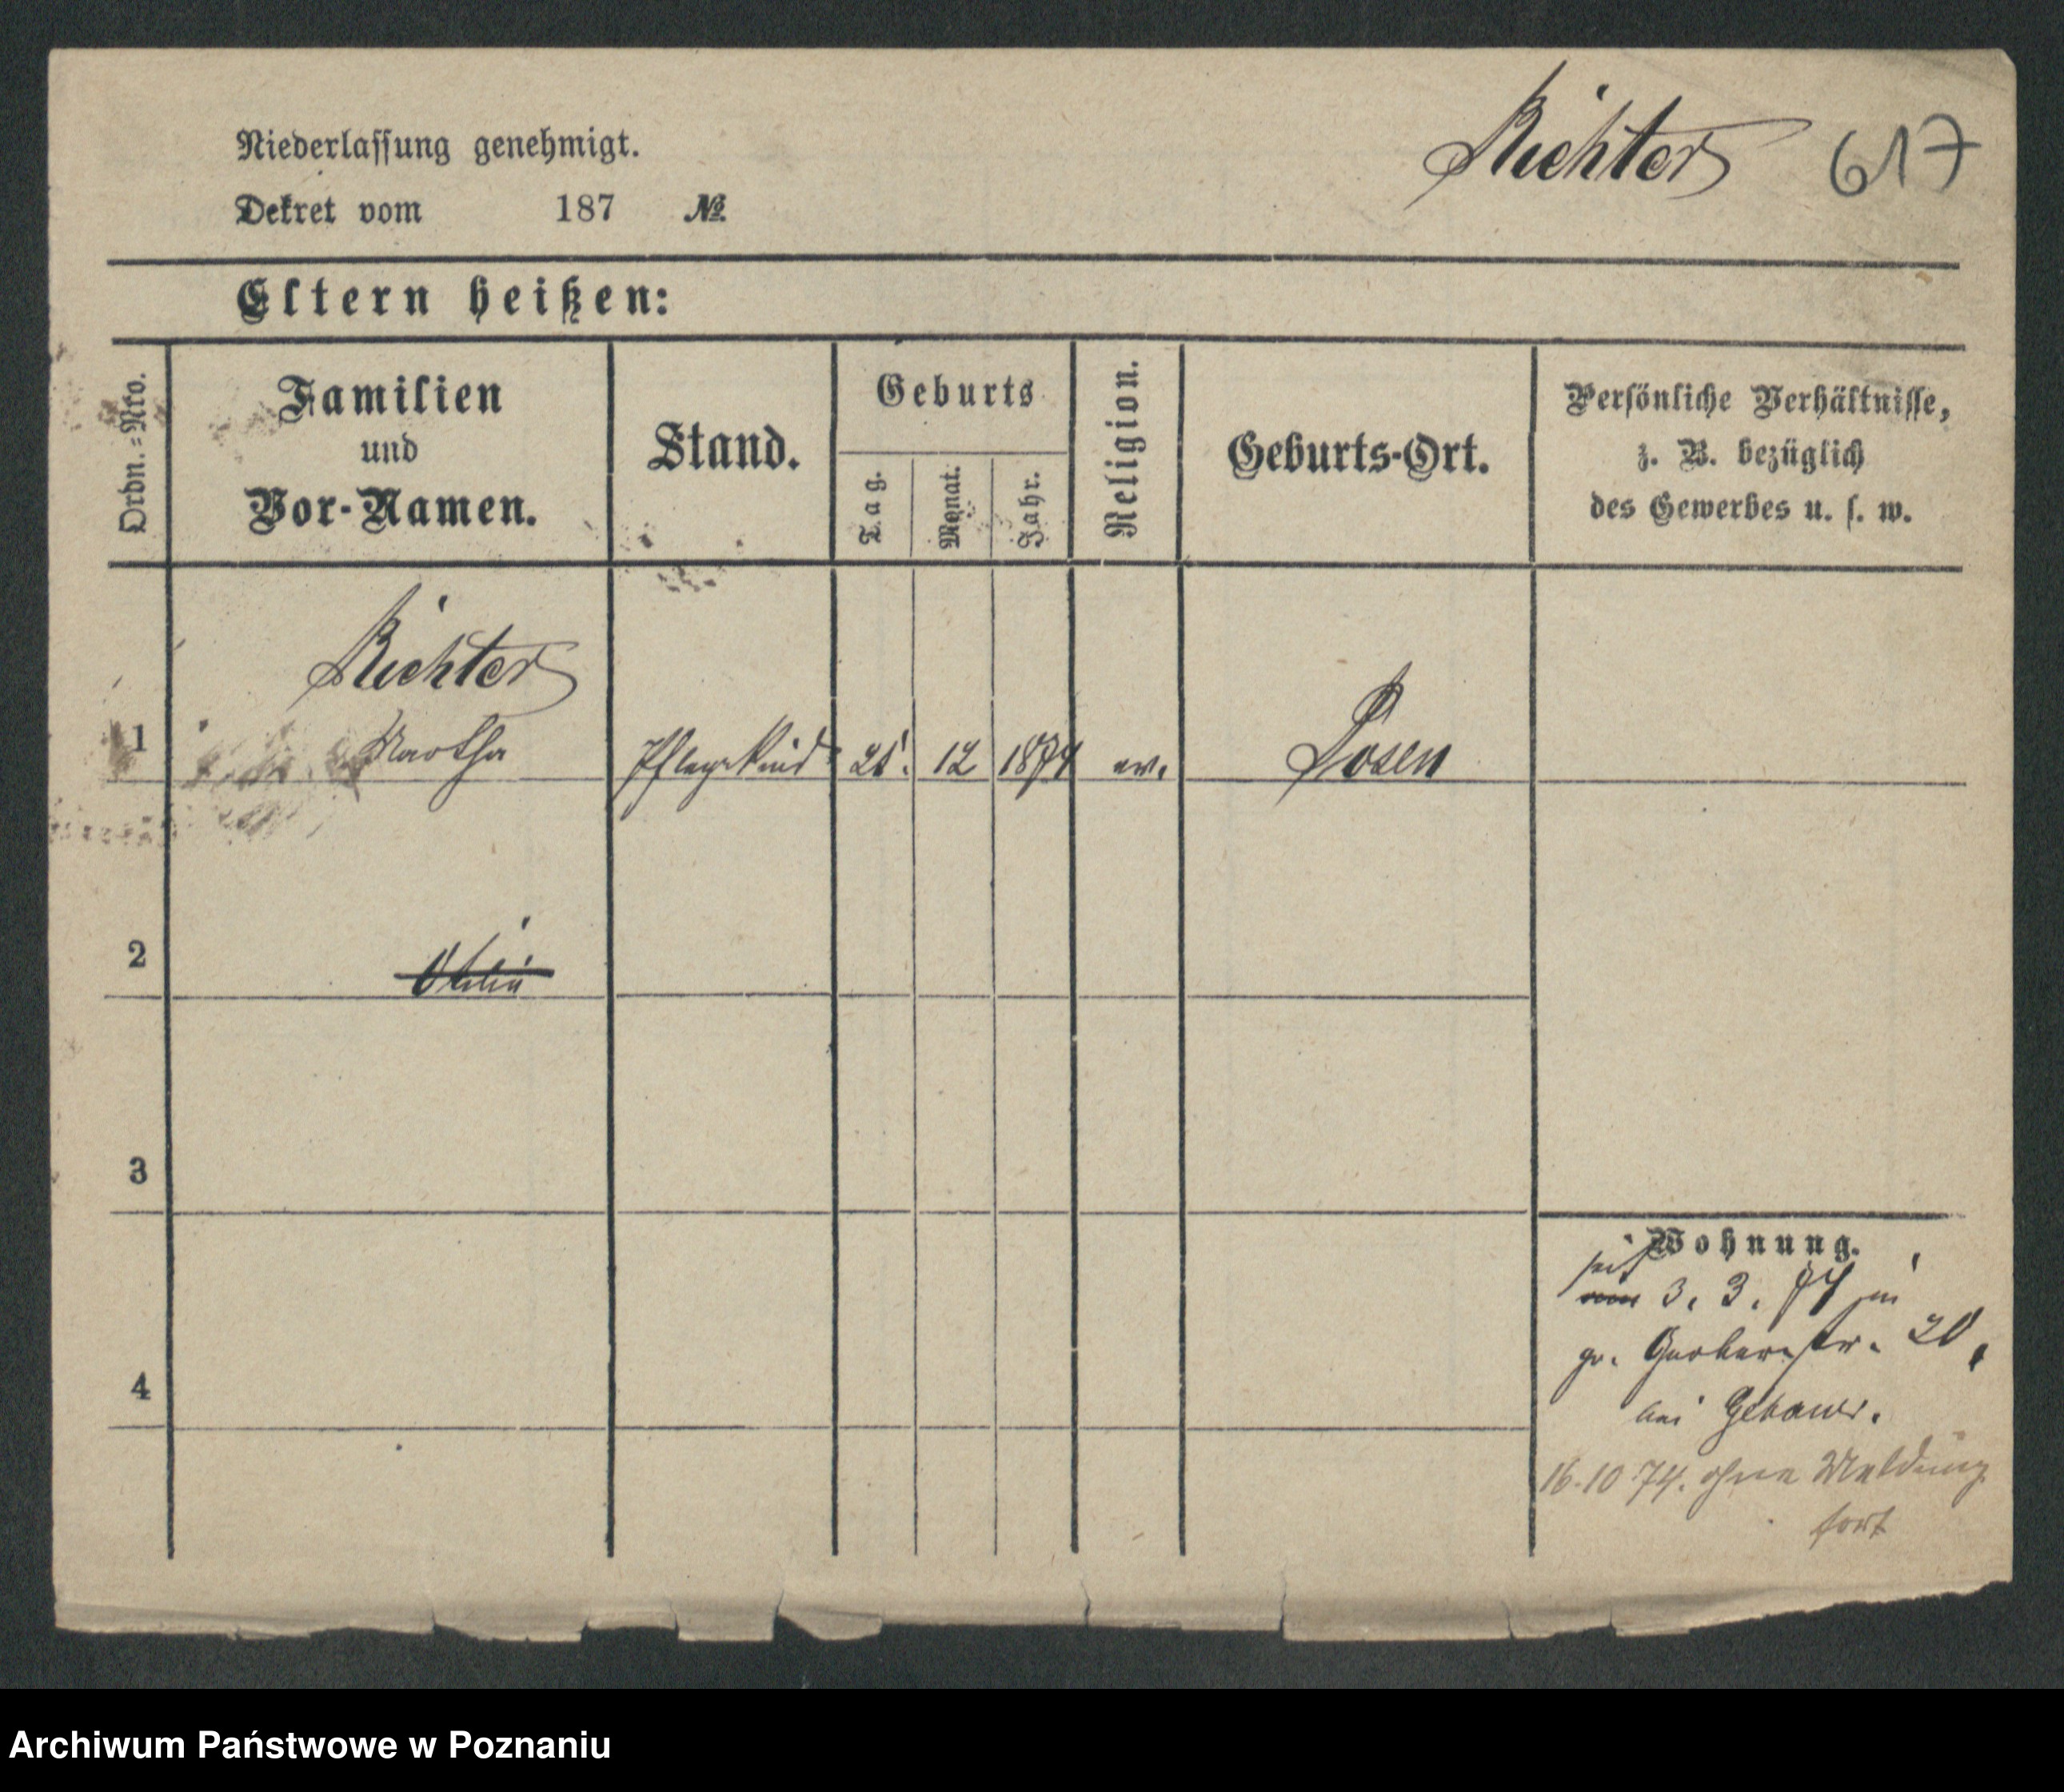 Niederlassung genehmigt.
Dekret vom 187 №
Richter 617
Eltern heißen:
Ordn.-Nro.
Familien
und
Vor-Namen.
Stand.
Geburts
Tag.
Monat.
Jahr.
Religion.
Geburts-Ort.
Persönliche Verhältnisse,
z. B. bezüglich
des Gewerbes u. s. w.
Richter
1 Martha Pflegekind 12 1874 ev. Posen
2
3
4
Wohnung.
seit
3. 3. 74 in
gr. Gerberstr.
bei Gebauer.
16.10 74. ohne Meldung
fort
Archiwum Państwowe w Poznaniu